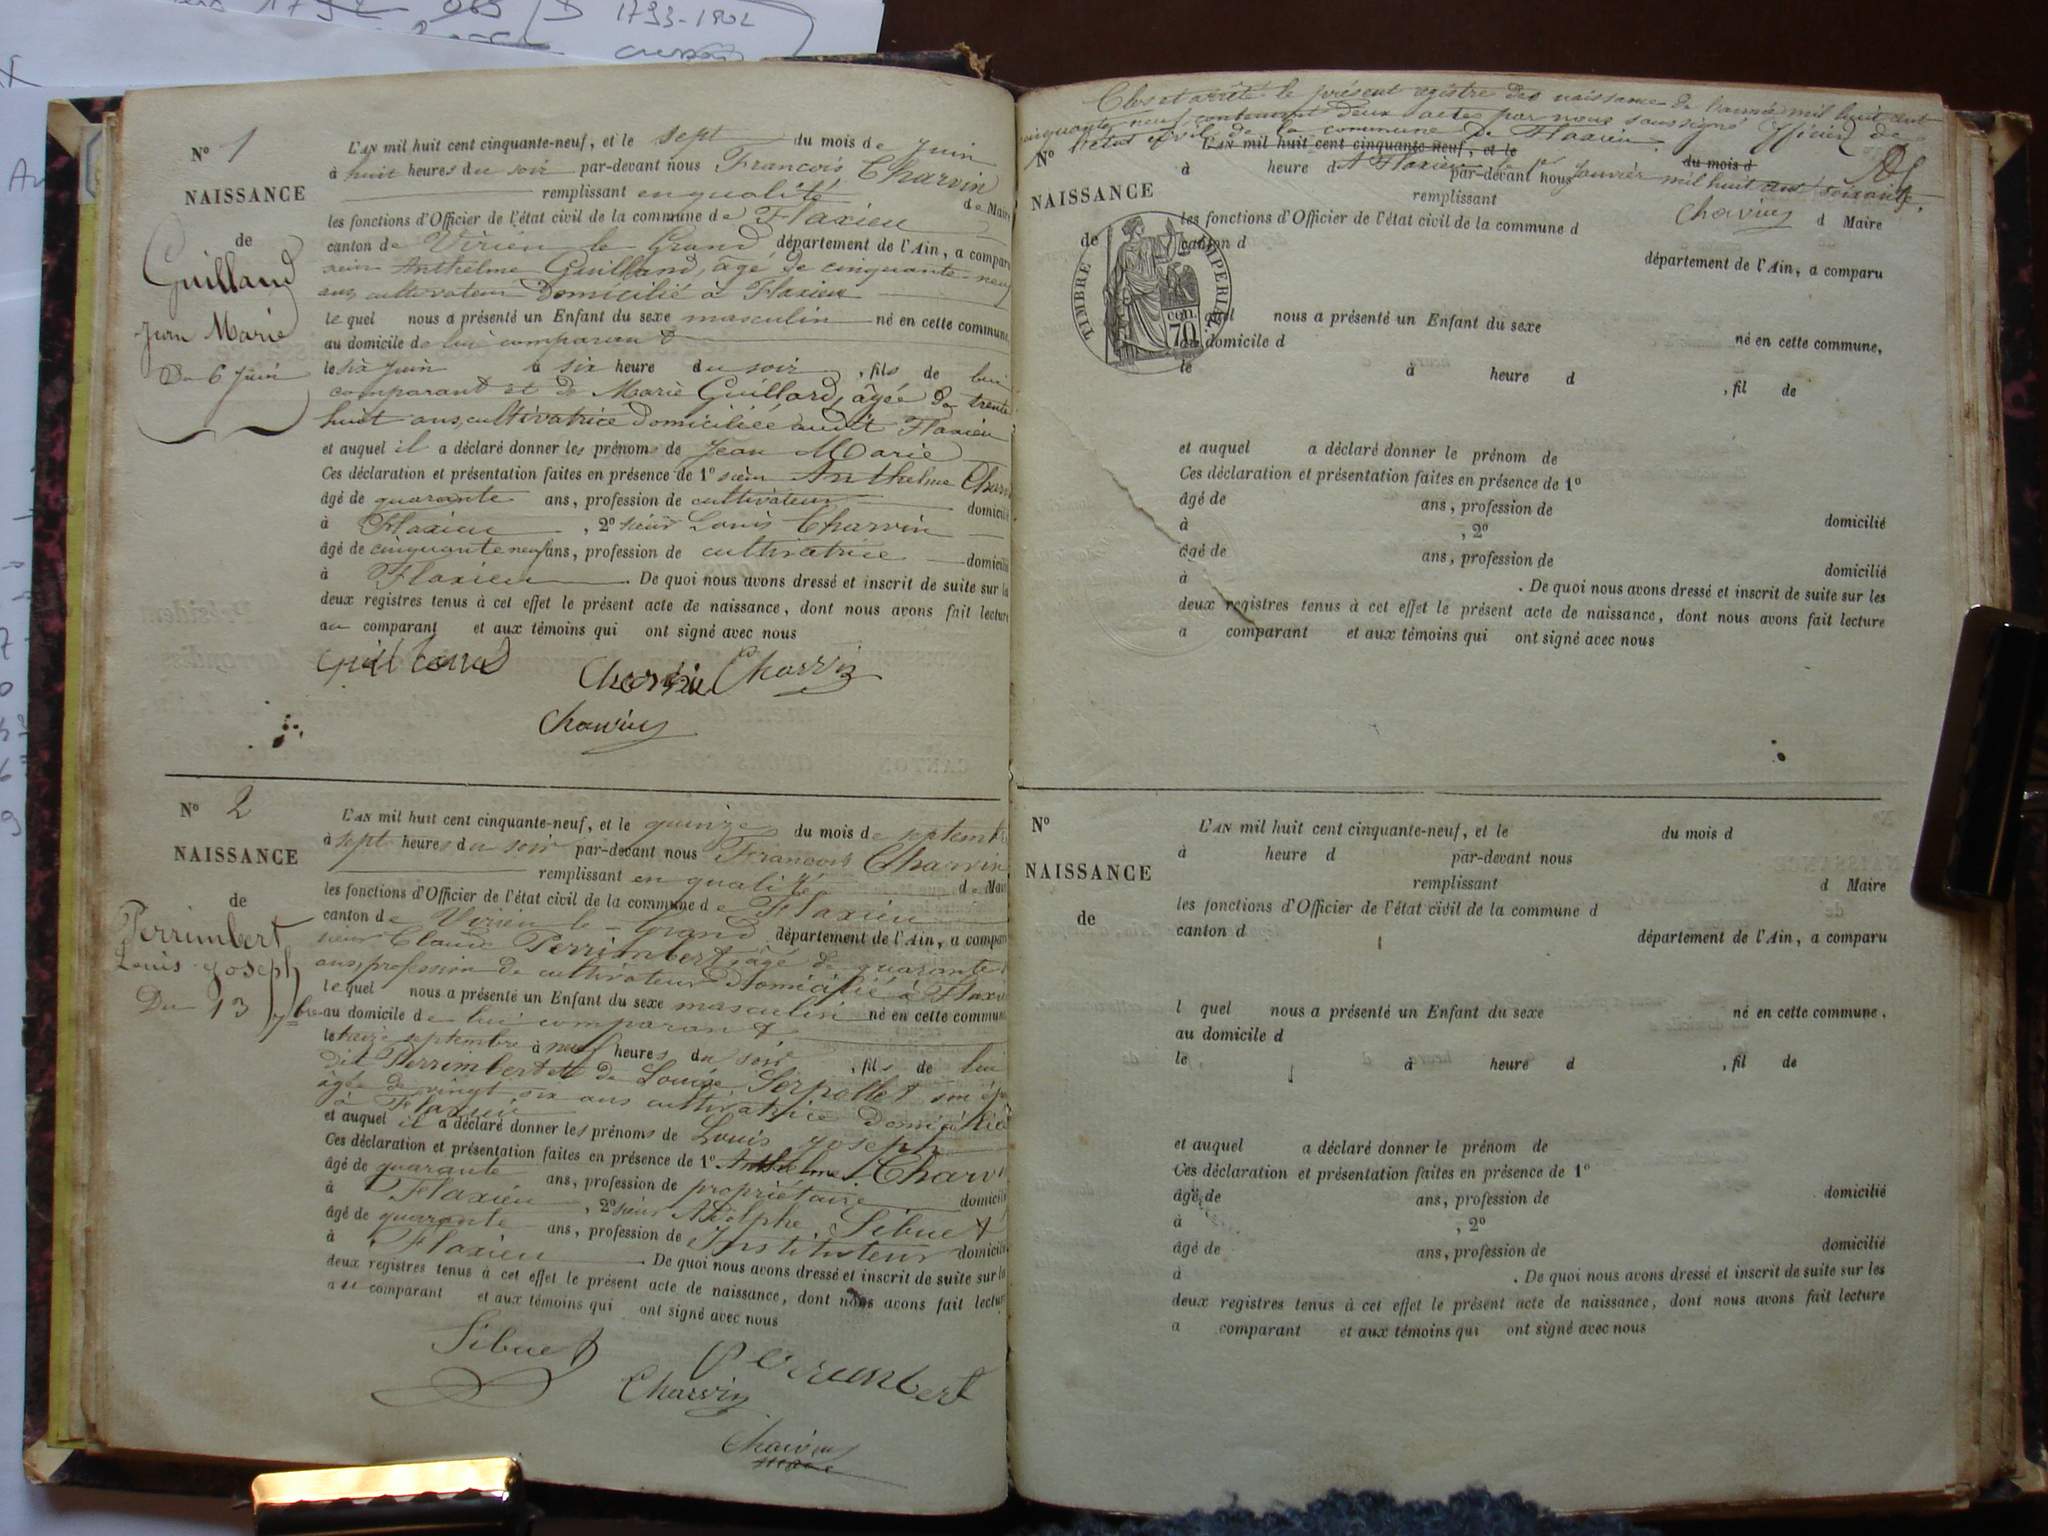 1793-1802
N° 1
NAISSANCE
de
Guilland
Jean Marie
Du 6 Juin
L'AN mil huit cent cinquante-neuf, et le sept du mois de Juin
à huit heures du soir par-devant nous François Charvin
remplissant en qualité de Maire
les fonctions d'Officier de l'état civil de la commune de Flaxieu
canton de Virieu le Grand département de l'Ain, a comparu
sieur Anthelme Guilland, âgé de cinquante neuf
ans cultivateur domicilié à Flaxieu
le quel nous a présenté un Enfant du sexe masculin né en cette commune,
au domicile de lui comparant
le six Juin à six heure du soir, fils de lui
comparant et de Marie Guilland, âgée de trente
huit ans, cultivatrice domiciliée audit Flaxieu
et auquel il a déclaré donner les prénoms de Jean Marie
Ces déclaration et présentation faites en présence de 1° sieur Anthelme Charvin
âgé de quarante ans, profession de cultivateur domicilié
à Flaxieu, 2° sieur Louis Charvin
âgé de cinquante neuf ans, profession de cultivatrice domicilié
à Flaxieu. De quoi nous avons dressé et inscrit de suite sur les
deux registres tenus à cet effet le présent acte de naissance, dont nous avons fait lecture
au comparant et aux témoins qui ont signé avec nous
Guilland
Charvin Charvin
Charvin
N° 2
NAISSANCE
de
Perrimbert
Louis Joseph
Du 13 7bre
L'AN mil huit cent cinquante-neuf, et le quinze du mois de septembre
à sept heures du soir par-devant nous François Charvin
remplissant en qualité de Maire
les fonctions d'Officier de l'état civil de la commune de Flaxieu
canton de Virieu le Grand département de l'Ain, a comparu
sieur Claude Perrimbert, âgé de quarante
ans, profession de cultivateur domicilié à Flaxieu
le quel nous a présenté un Enfant du sexe masculin né en cette commune
au domicile de lui comparant
le treize septembre à neuf heures du soir, fils de lui
dit Perrimbert et de Louise Serpollet son épouse
âgée de vingt six ans cultivatrice domiciliée
à Flaxieu
et auquel il a déclaré donner les prénoms de Louis Joseph
Ces déclaration et présentation faites en présence de 1° Anthelme Charvin
âgé de quarante ans, profession de propriétaire domicilié
à Flaxieu, 2° sieur Adolphe Sibuet
âgé de quarante ans, profession de Instituteur domicilié
à Flaxieu. De quoi nous avons dressé et inscrit de suite sur les
deux registres tenus à cet effet le présent acte de naissance, dont nous avons fait lecture
au comparant et aux témoins qui ont signé avec nous
Sibuet Perrimbert
Charvin
Charvin
Clos et arrêté le présent registre des naissances de l'année mil huit cent
cinquante neuf contenant deux actes par nous soussigné Officier de
l'état civil de la commune de Flaxieu.
A Flaxieu le 1er Janvier mil huit cent soixante.
Charvin
N°
NAISSANCE
de
L'AN mil huit cent cinquante-neuf, et le du mois d
à heure d par-devant nous
remplissant d Maire
les fonctions d'Officier de l'état civil de la commune d
canton d département de l'Ain, a comparu
TIMBRE IMPERIAL
70 cen.
quel nous a présenté un Enfant du sexe né en cette commune,
au domicile d
le à heure d, fil de
et auquel a déclaré donner le prénom de
Ces déclaration et présentation faites en présence de 1°
âgé de ans, profession de domicilié
à, 2°
âgé de ans, profession de domicilié
à. De quoi nous avons dressé et inscrit de suite sur les
deux registres tenus à cet effet le présent acte de naissance, dont nous avons fait lecture
a comparant et aux témoins qui ont signé avec nous
N°
NAISSANCE
de
L'AN mil huit cent cinquante-neuf, et le du mois d
à heure d par-devant nous
remplissant d Maire
les fonctions d'Officier de l'état civil de la commune d
canton d département de l'Ain, a comparu
l quel nous a présenté un Enfant du sexe né en cette commune,
au domicile d
le à heure d, fil de
et auquel a déclaré donner le prénom de
Ces déclaration et présentation faites en présence de 1°
âgé de ans, profession de domicilié
à, 2°
âgé de ans, profession de domicilié
à. De quoi nous avons dressé et inscrit de suite sur les
deux registres tenus à cet effet le présent acte de naissance, dont nous avons fait lecture
a comparant et aux témoins qui ont signé avec nous